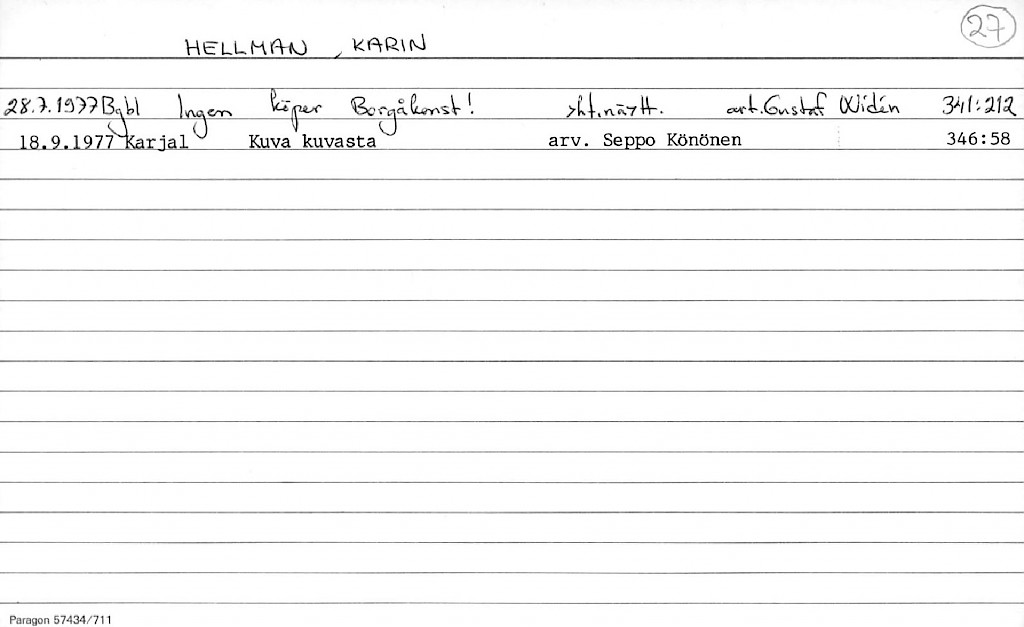 27
HELLMAN, KARIN
28.7.1977 Bgbl Ingen köper Borgåkonst! yht.näytt. art. Gustaf Widén 341:212
18.9.1977 Karjal Kuva kuvasta arv. Seppo Könönen 346:58
Paragon 57434/711